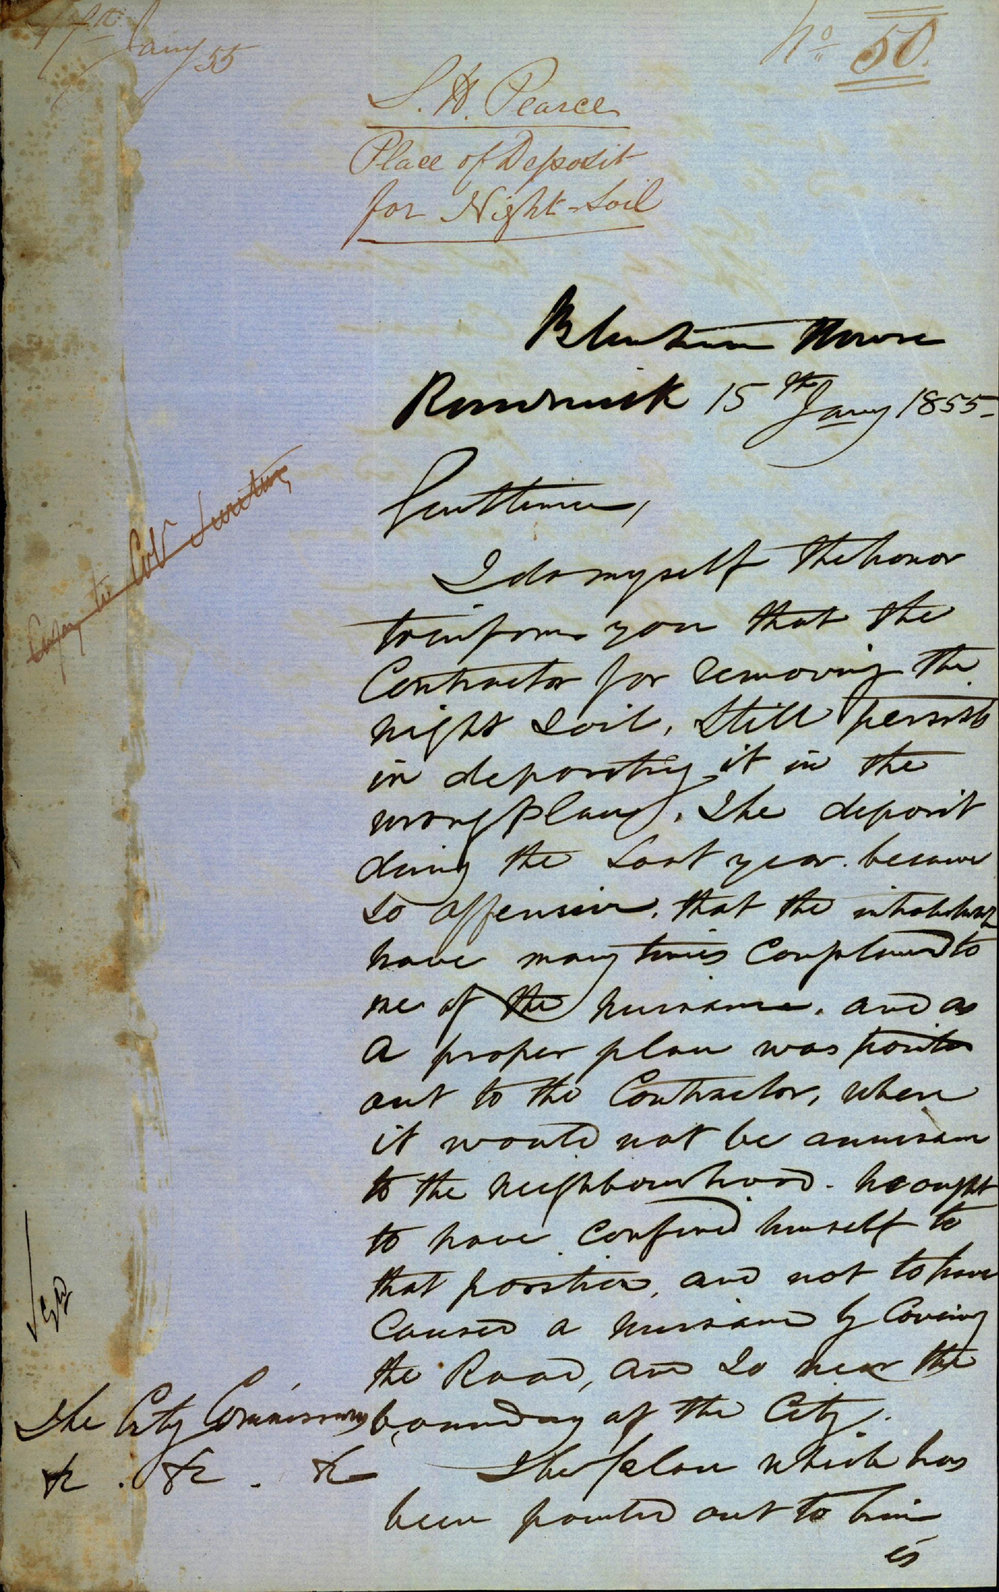 17th Jany 55
No 50.
S. H. Pearce
Place of Deposit
for Night-Soil
Blenheim House
Randwick 15th Jany 1855-
Gentlemen,
I do myself the honor
to inform you that the
Contractor for removing the
night Soil, Still persists
in depositing it in the
wrong place. The deposit
during the last year became
so offensive, that the inhabitants
have many times Complained to
me of the nuisance, and as
a proper place was pointed
out to the Contractor, where
it would not be a nuisance
to the neighbourhood. he ought
to have Confined himself to
that position, and not to have
Caused a nuisance by Covering
the Road, and so near the
boundary of the City.
The place which has
been pointed out to him
is
Copy to Col Secretary
The City Commissioners
&c . &c . &c